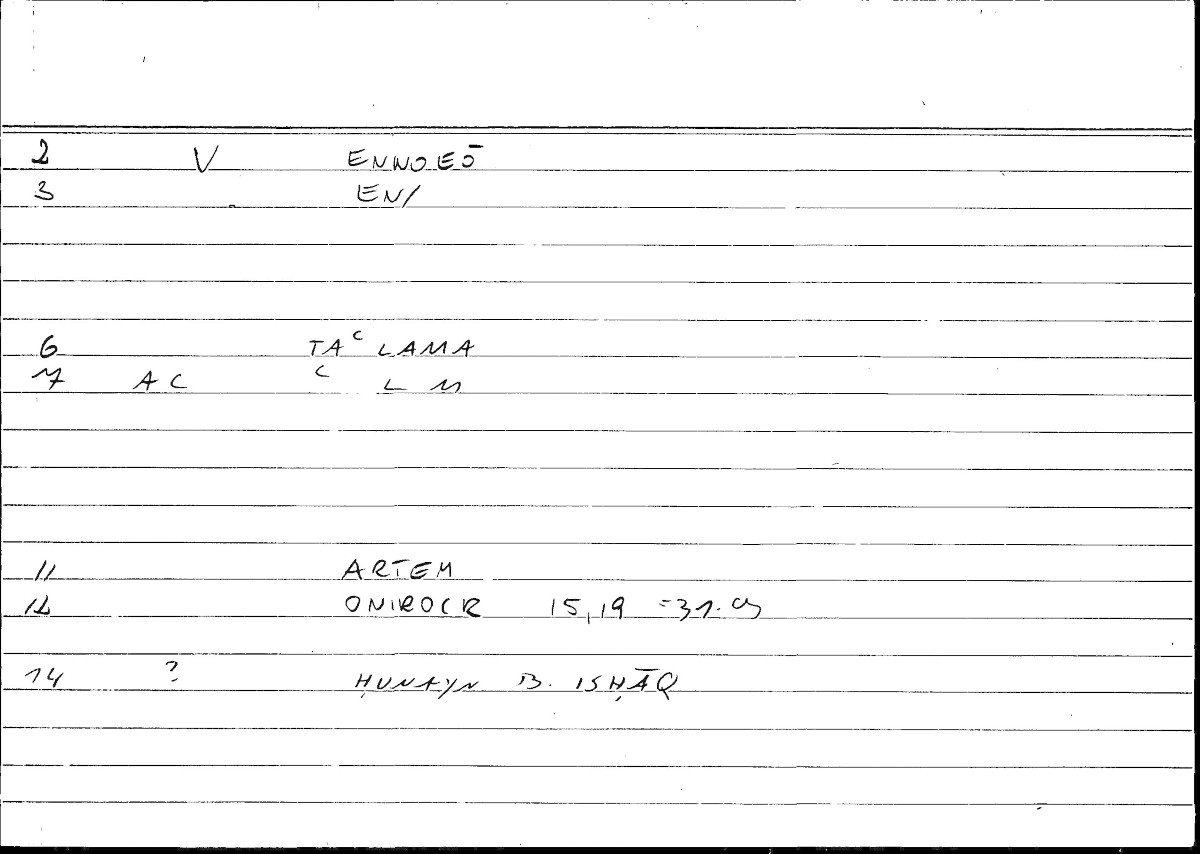 2 V ENNOEŌ
3 EN/
6 TAᶜLAMA
7 AC ᶜ L M
11 ARTEM
12 ONIROCR 15,19 =31.9
14 ? ḤUNAYN B. ISḤĀQ